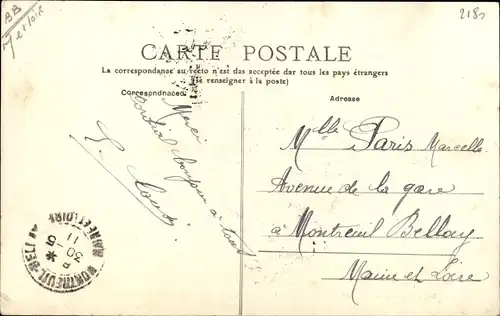 BB
2180
CARTE POSTALE
La correspondance au recto n'est das acceptée dar tous les pays étrangers
(Se renseigner à la poste)
Correspndnaced
Adresse
Merci
Cordial bonjour à tous
Mlle Paris Marcelle
Avenue de la gare
à Montreuil Bellay
Maine et Loire
MONTREUIL-BELLAY
MAINE ET LOIRE
30 - 5
11